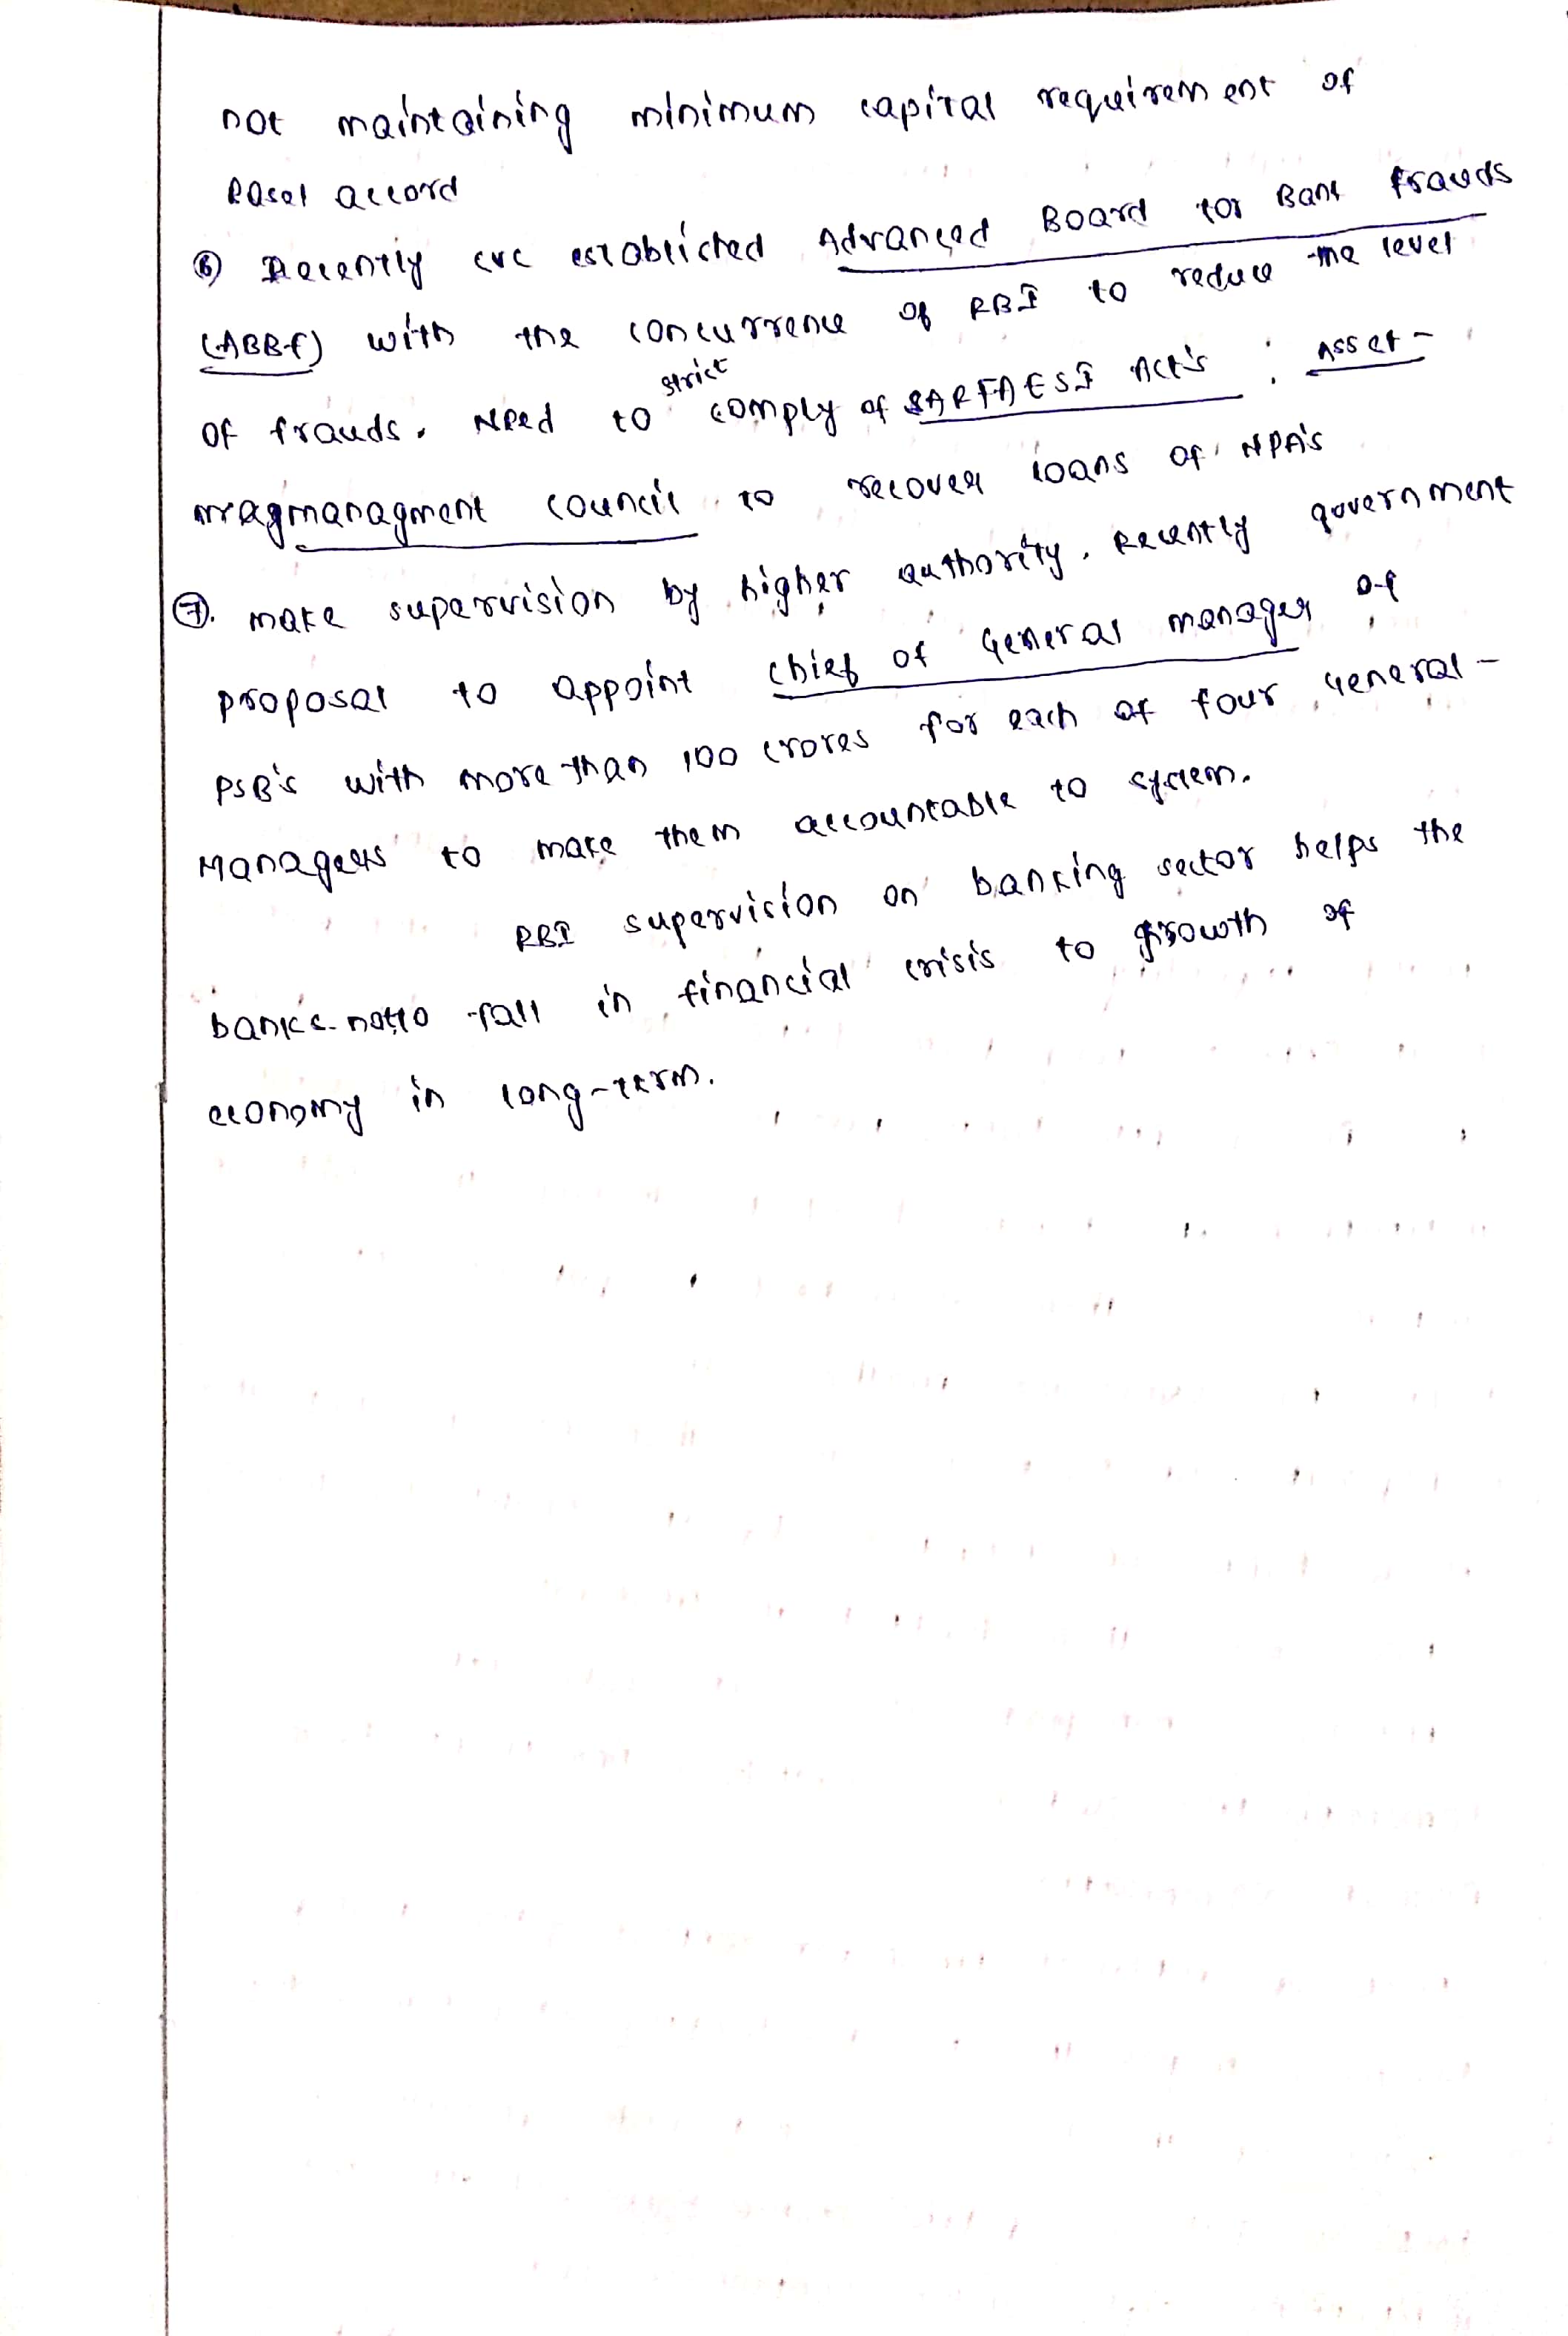 not maintaining minimum capital requirement of
Basel accord
⑥ Recently CVC established Advanced Board for Bank Frauds
(ABBF) with the concurrence of RBI to reduce the level
of frauds. Need to strict comply of SARFAESI Act's : Asset-
managment council to recover loans of NPA's
⑦. make supervision by higher authority. Recently government
proposal to appoint chief of General manager of
PSB's with more than 100 crores for each of four General-
Managers to make them accountable to system.
RBI supervision on banking sector helps the
banks notto fall in financial crisis to growth of
economy in long-term.